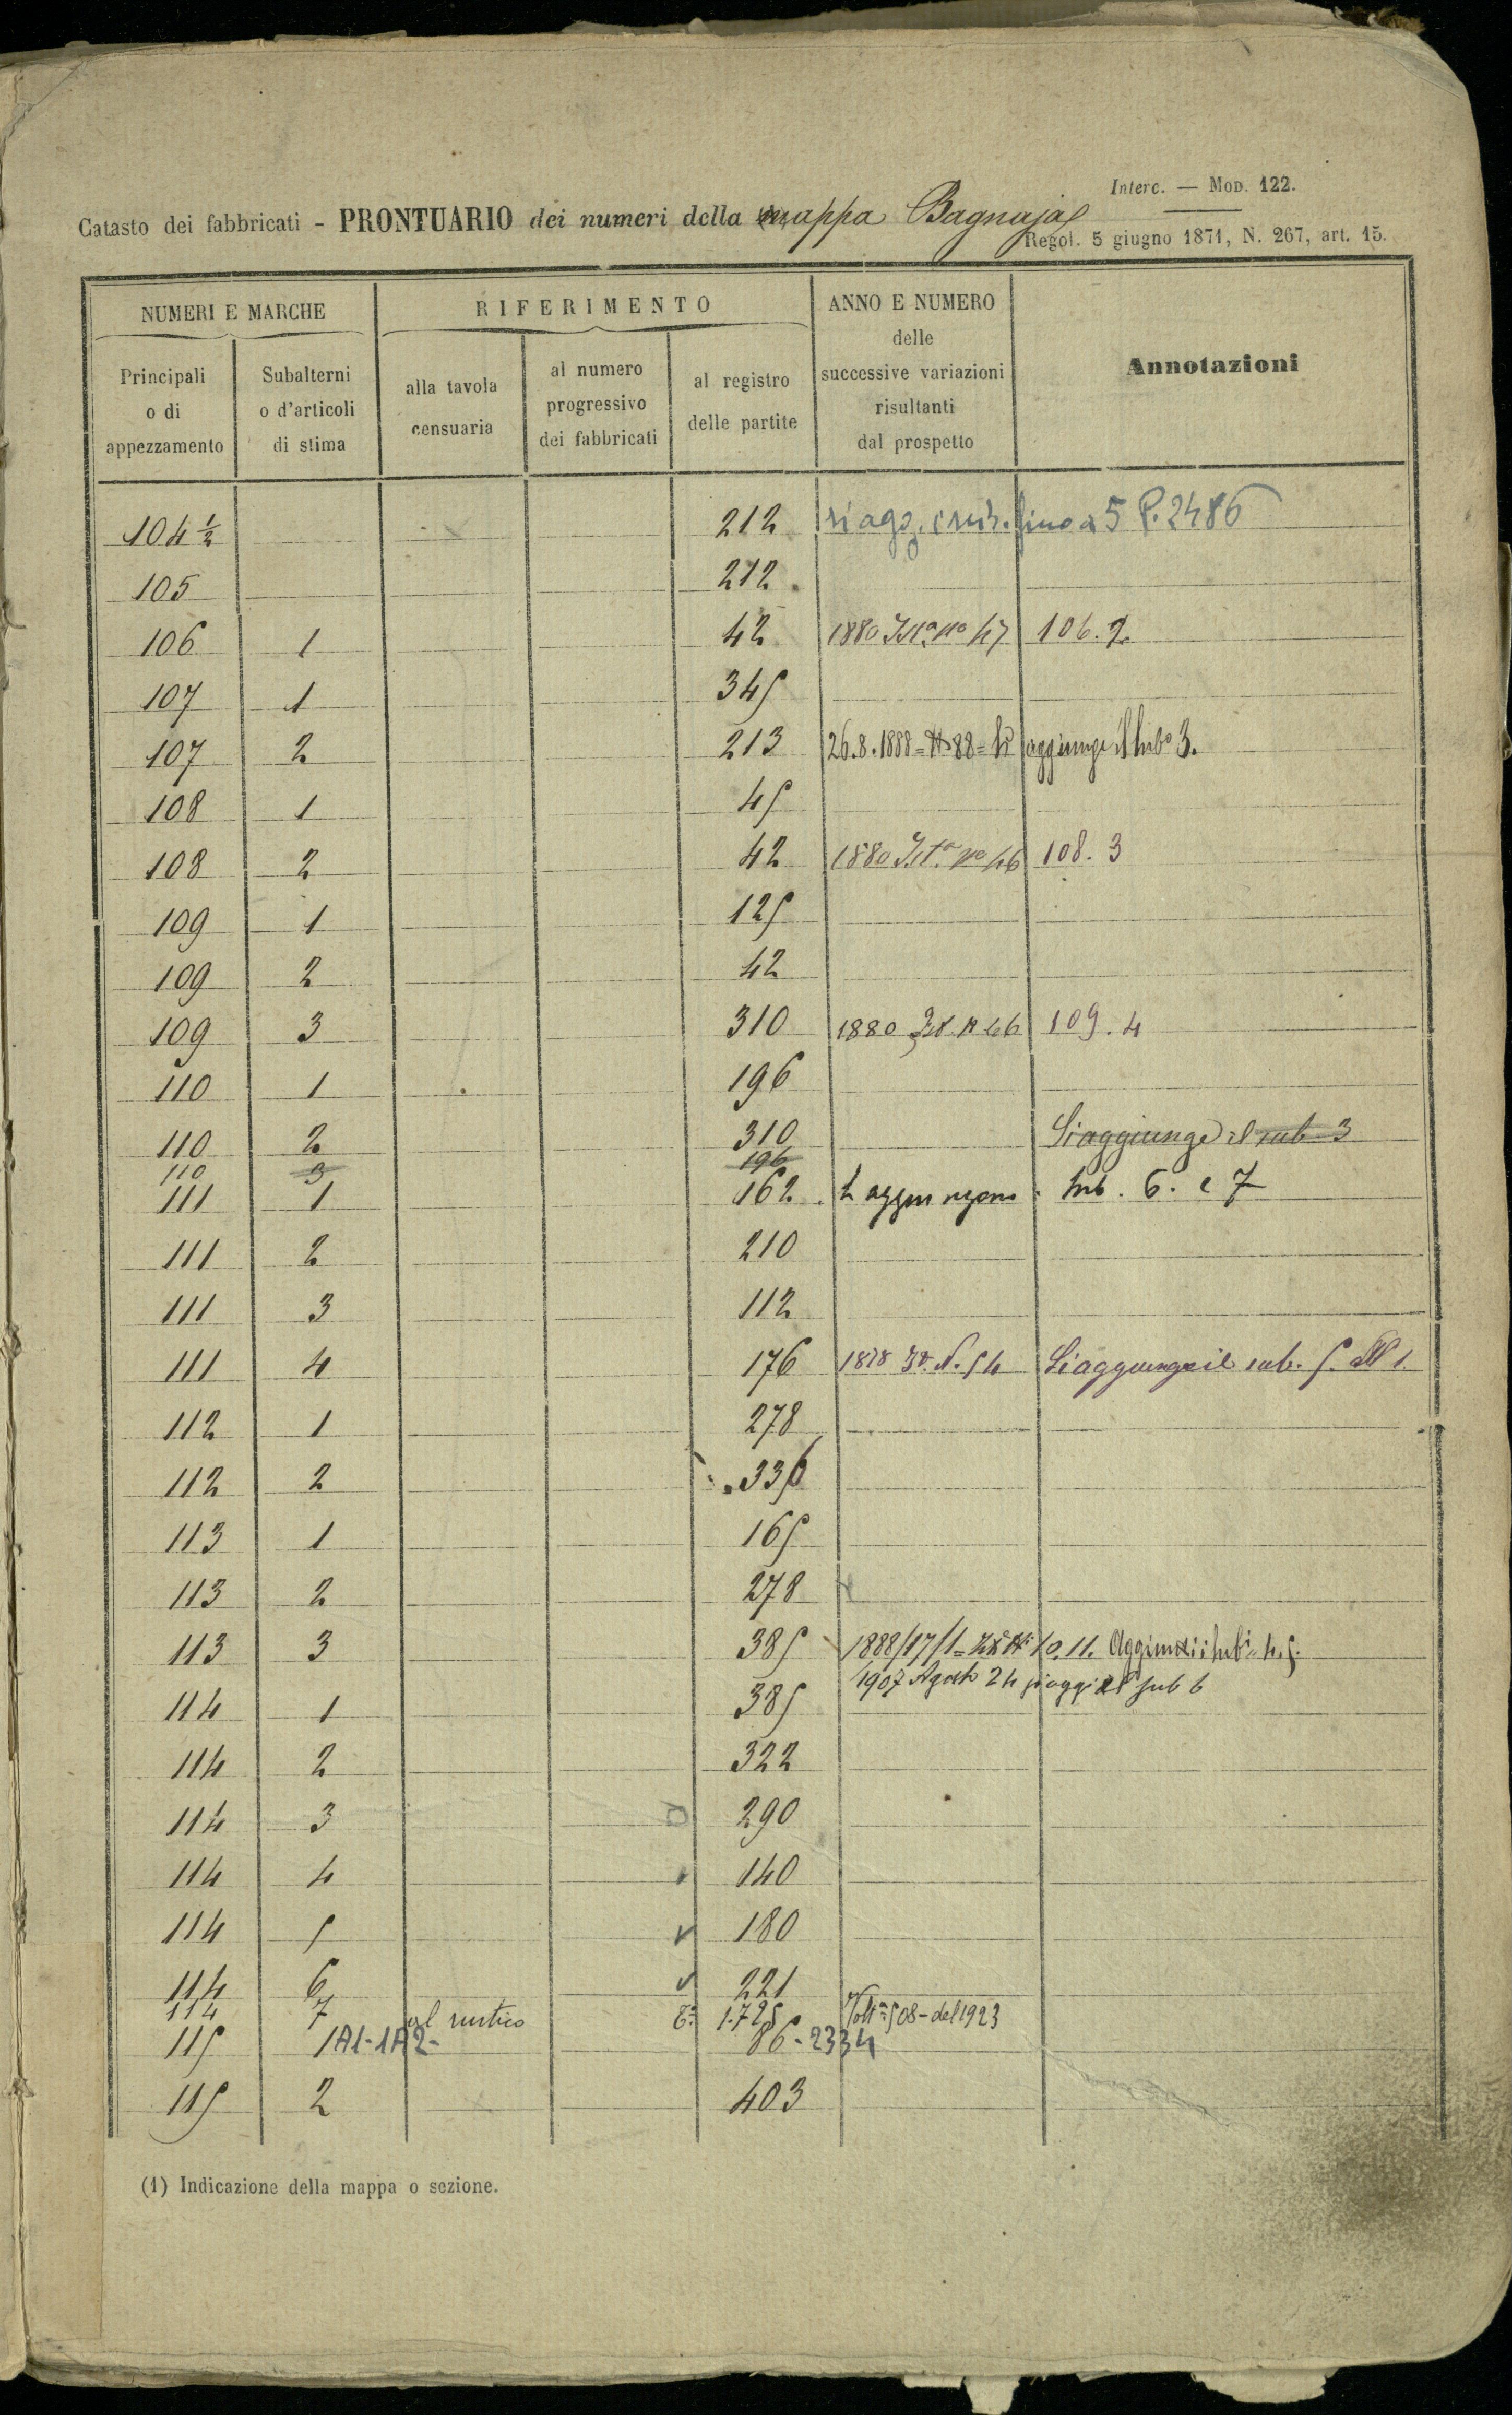 Interc. — Mod. 122.
Catasto dei fabbricati - PRONTUARIO dei numeri della mappa Bagnaja
Regol. 5 giugno 1871, N. 267, art. 15.
NUMERI E MARCHE RIFERIMENTO ANNO E NUMERO delle successive variazioni risultanti dal prospetto Annotazioni
Principali o di appezzamento Subalterni o d'articoli di stima alla tavola censuaria al numero progressivo dei fabbricati al registro delle partite
104 ½ 212 fino a 5 P. 2486
105 212
106 1 42 1880 47 106. 2
107 1 345
107 2 213 26.8.1888 = 88 = Si aggiunge il sub° 3.
108 1 45
108 2 42 1880 46 108. 3
109 1 125
109 2 42
109 3 310 1880 46 109. 4
110 1 196
110 2 310 Si aggiunge il sub 3
110 3 196
111 1 162 Si aggiungono sub. 6. e 7
111 2 210
111 3 112
111 4 176 1878 N. 54 Si aggiunge il sub. 5.
112 1 278
112 2 336
113 1 165
113 2 278
113 3 385 1888/17/1 = 10. 11. Aggiunti i sub¹ 4. 5.
1907 Agosto 24 si aggi il sub 6
114 1 385
114 2 322
114 3 290
114 4 140
114 5 180
114 6 221
114 7 al rustico 1.725 Volt.ª 508 - del 1923
115 1A1-1A2- 86-2334
115 2 403
(1) Indicazione della mappa o sezione.